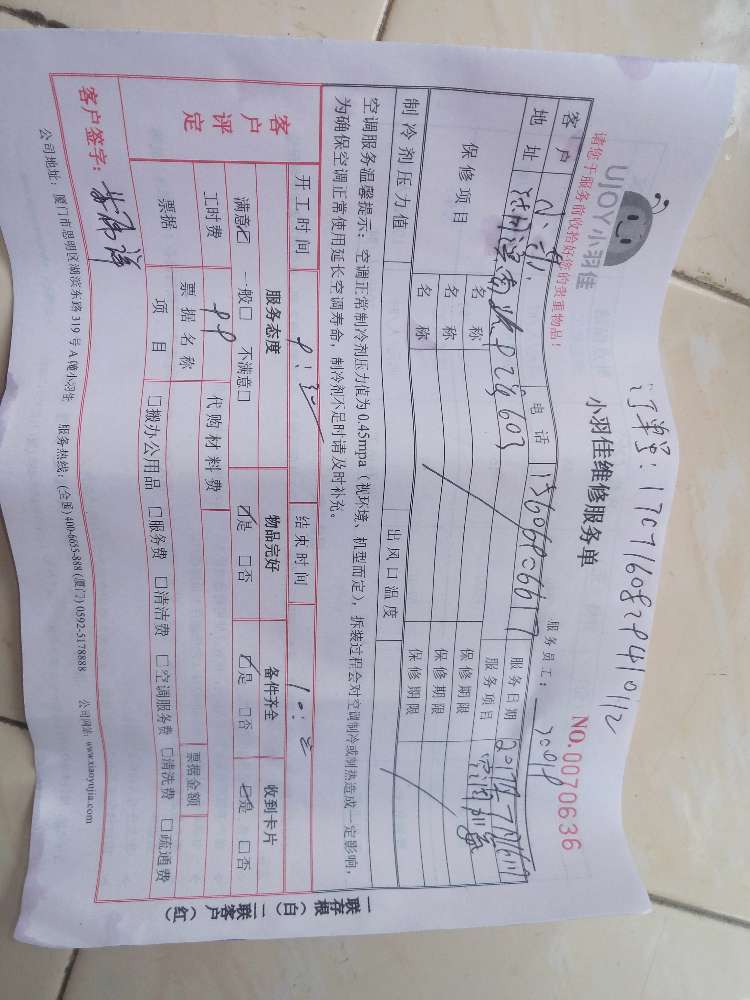 订单号：
UJOY小羽佳
请您于服务前收拾好您的贵重物品！
小羽佳维修服务单
NO.0070636
服务员工：
客户 电话 服务日期
地址 603 服务项目
保修项目 名称 保修期限
名称 保修期限
名称 保修期限
制冷剂压力值 出风口温度
空调服务温馨提示：空调正常制冷剂压力值为0.45mpa（视环境、机型而定），拆装过程会对空调制冷或制热造成一定影响，
为确保空调正常使用延长空调寿命，制冷剂不足时请及时补充。
开工时间 结束时间
客户评定 服务态度 物品完好 备件齐全 收到卡片
满意☑ 一般□ 不满意□ ☑是 □否 ☑是 □否 ☑是 □否
工时费 99 代购材料费
票据 票据名称 票据金额
项目 □搬办公用品 □服务费 □清洁费 □空调服务费 □清洗费 □疏通费
客户签字：
公司地址：厦门市思明区湖滨东路319号A幢小羽佳 服务热线：(全国) 400-6655-888 (厦门) 0592-5178888 公司网站：www.xiaoyujia.com
一联存根（白） 二联客户（红）